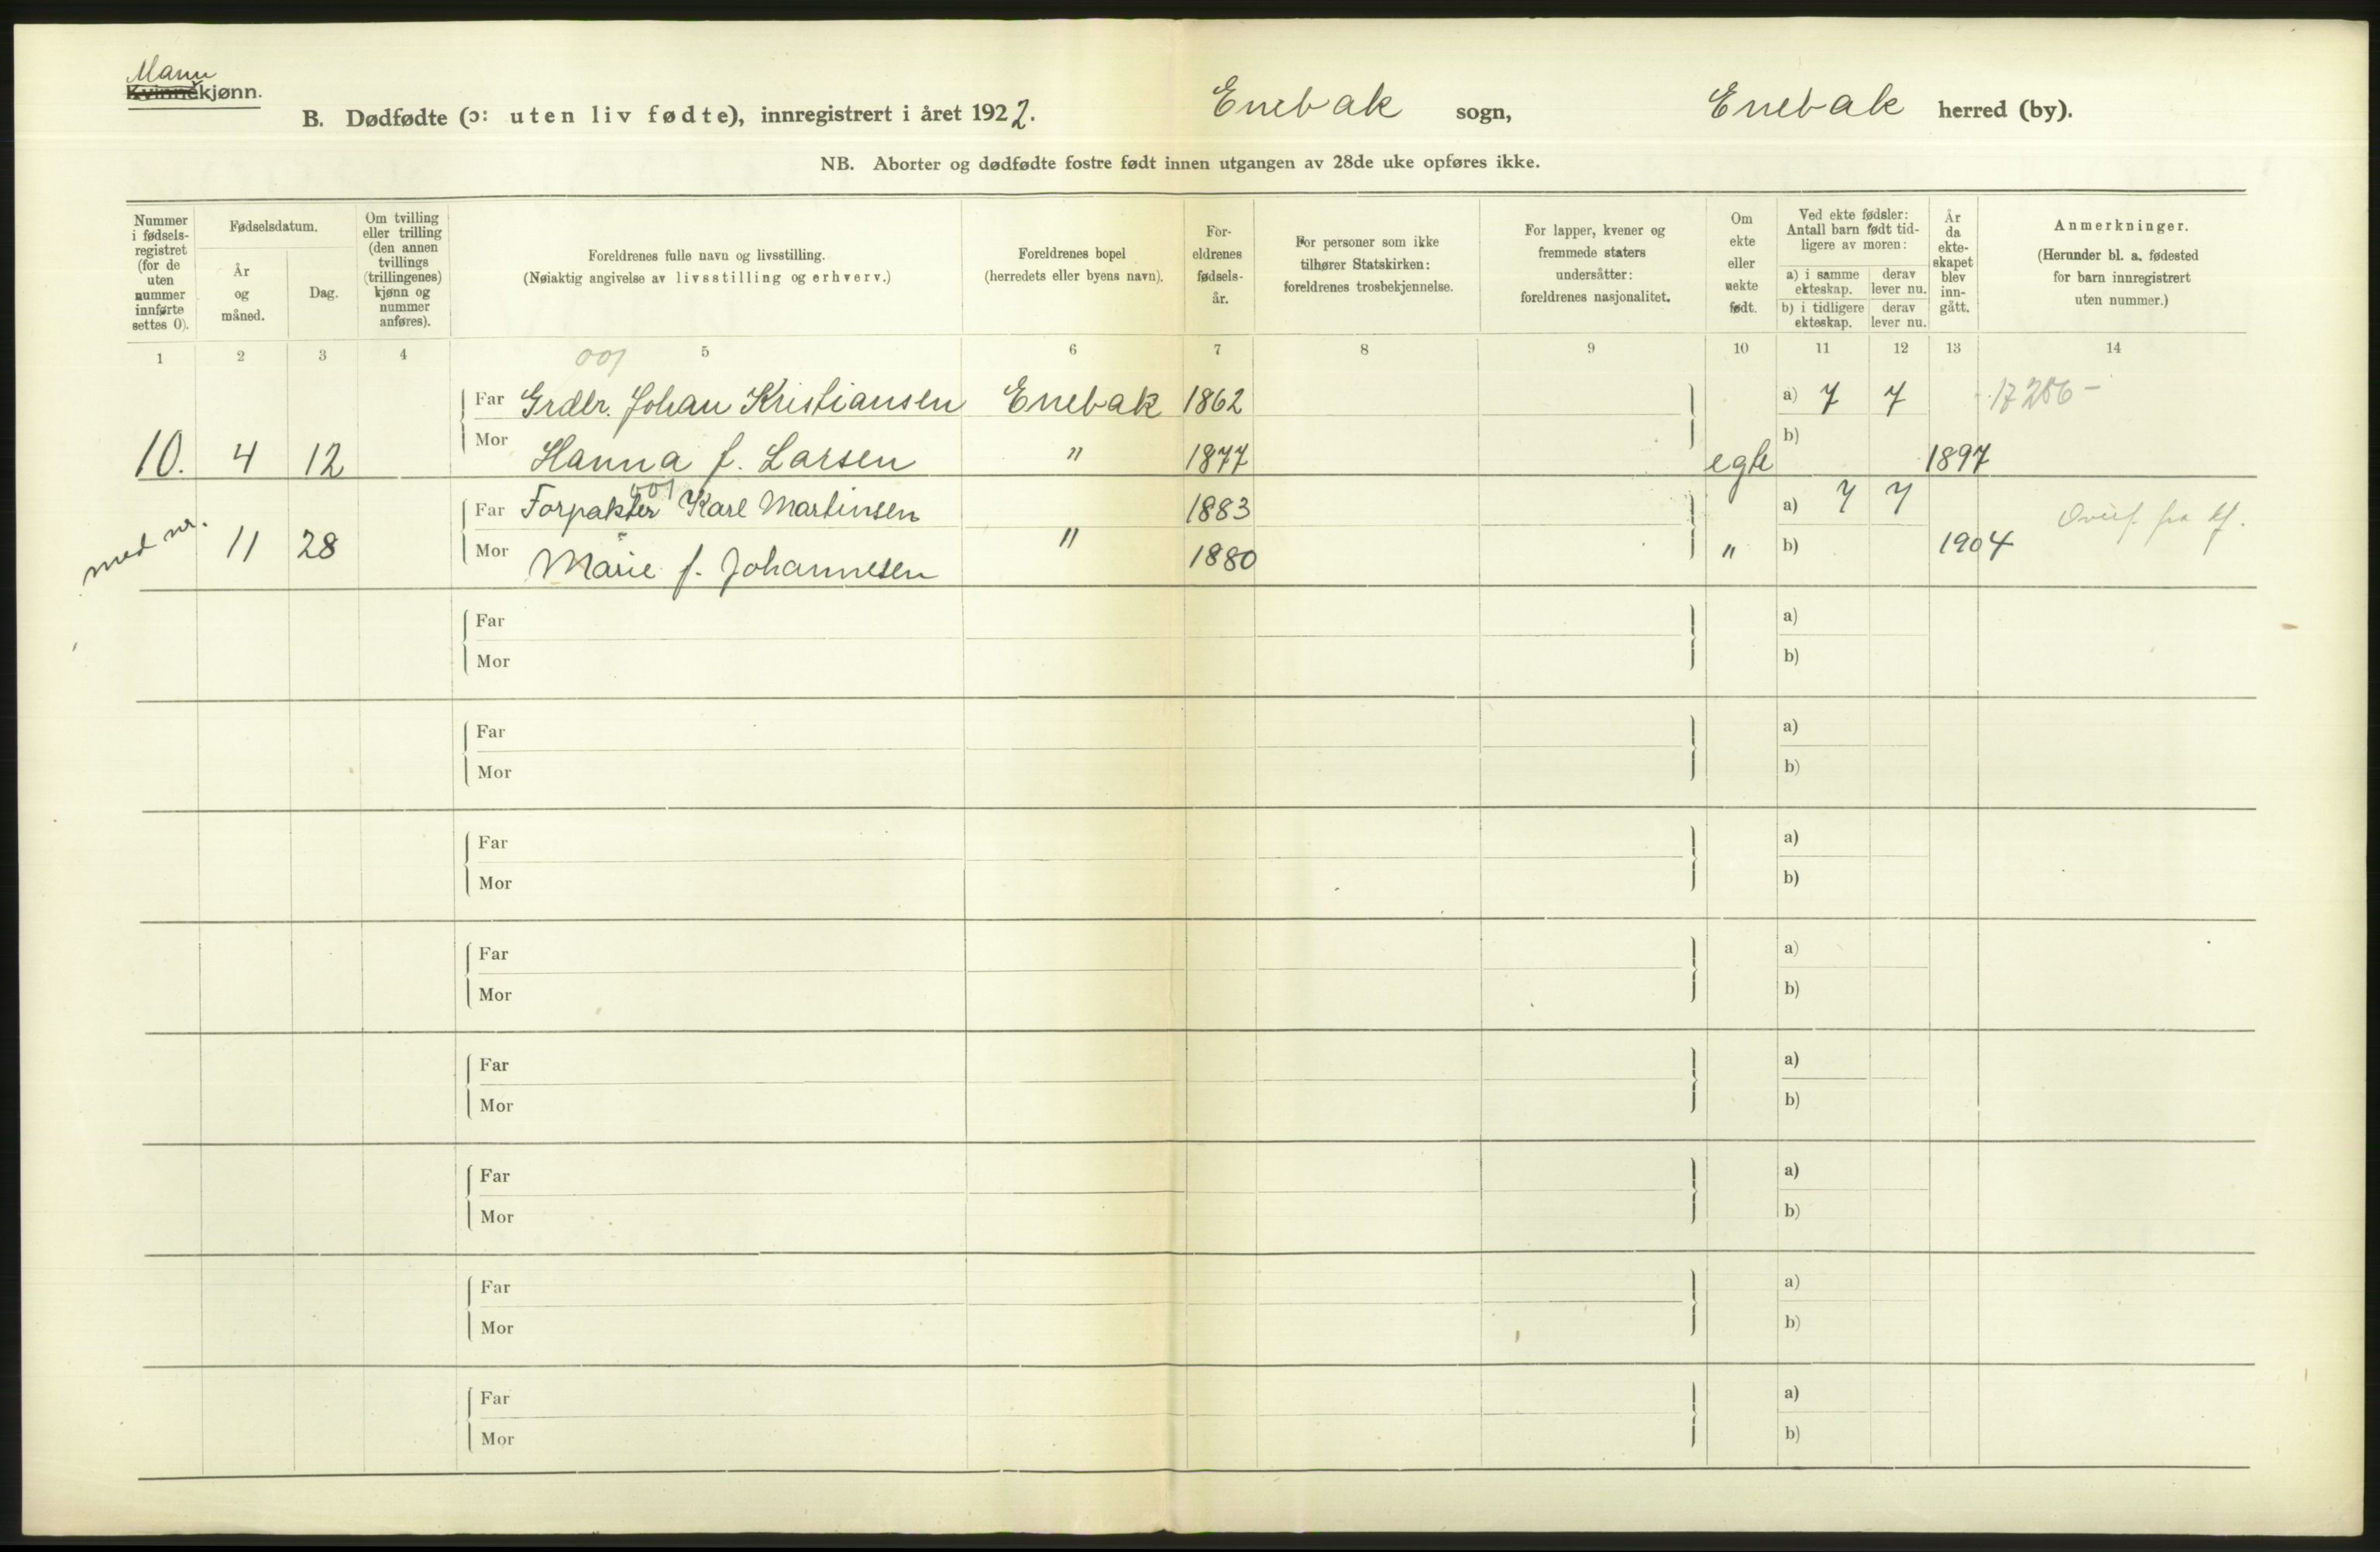 Mann
Kvinnekjønn.
B. Dødfødte (ɔ: uten liv fødte), innregistrert i året 1922. Enebak sogn, Enebak herred (by).
NB. Aborter og dødfødte fostre født innen utgangen av 28de uke opføres ikke.
Nummer i fødsels-registret (for de uten nummer innførte settes 0).
Fødselsdatum.
År og måned.
Dag.
Om tvilling eller trilling (den annen tvillings (trillingenes) kjønn og nummer anføres).
Foreldrenes fulle navn og livsstilling.
(Nøiaktig angivelse av livsstilling og erhverv.)
Foreldrenes bopel
(herredets eller byens navn).
For-eldrenes fødsels-år.
For personer som ikke tilhører Statskirken: foreldrenes trosbekjennelse.
For lapper, kvener og fremmede staters undersåtter: foreldrenes nasjonalitet.
Om ekte eller uekte født.
Ved ekte fødsler: Antall barn født tid-ligere av moren:
a) i samme ekteskap. derav lever nu.
b) i tidligere ekteskap. derav lever nu.
År da ekte-skapet blev inn-gått.
Anmerkninger.
(Herunder bl. a. fødested for barn innregistrert uten nummer.)
1 2 3 4 5 6 7 8 9 10 11 12 13 14
001
Far Grdbr. Johan Kristiansen Enebak 1862 a) 7 7
10. 4 12 Mor Hanna f. Larsen " 1877 egte b) 1897
001
Far Forpakter Karl Martinsen 1883 a) 7 7
med nr. 11 28 Mor Marie f. Johannesen " 1880 " b) 1904
Far a)
Mor b)
Far a)
Mor b)
Far a)
Mor b)
Far a)
Mor b)
Far a)
Mor b)
Far a)
Mor b)
Far a)
Mor b)
Far a)
Mor b)